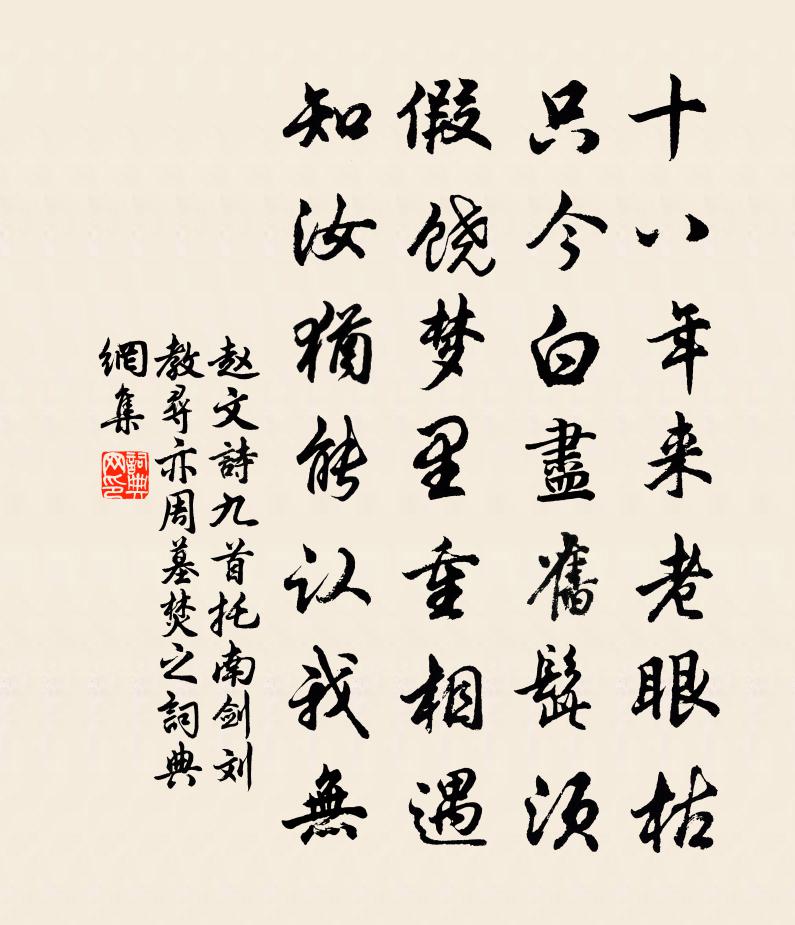 十八年来老眼枯
只今白盡舊髭须
假饶梦里重相遇
知汝猶能认我無
赵文詩九首托南剑刘
教尋亦周墓焚之詞典
網集
詞典网印